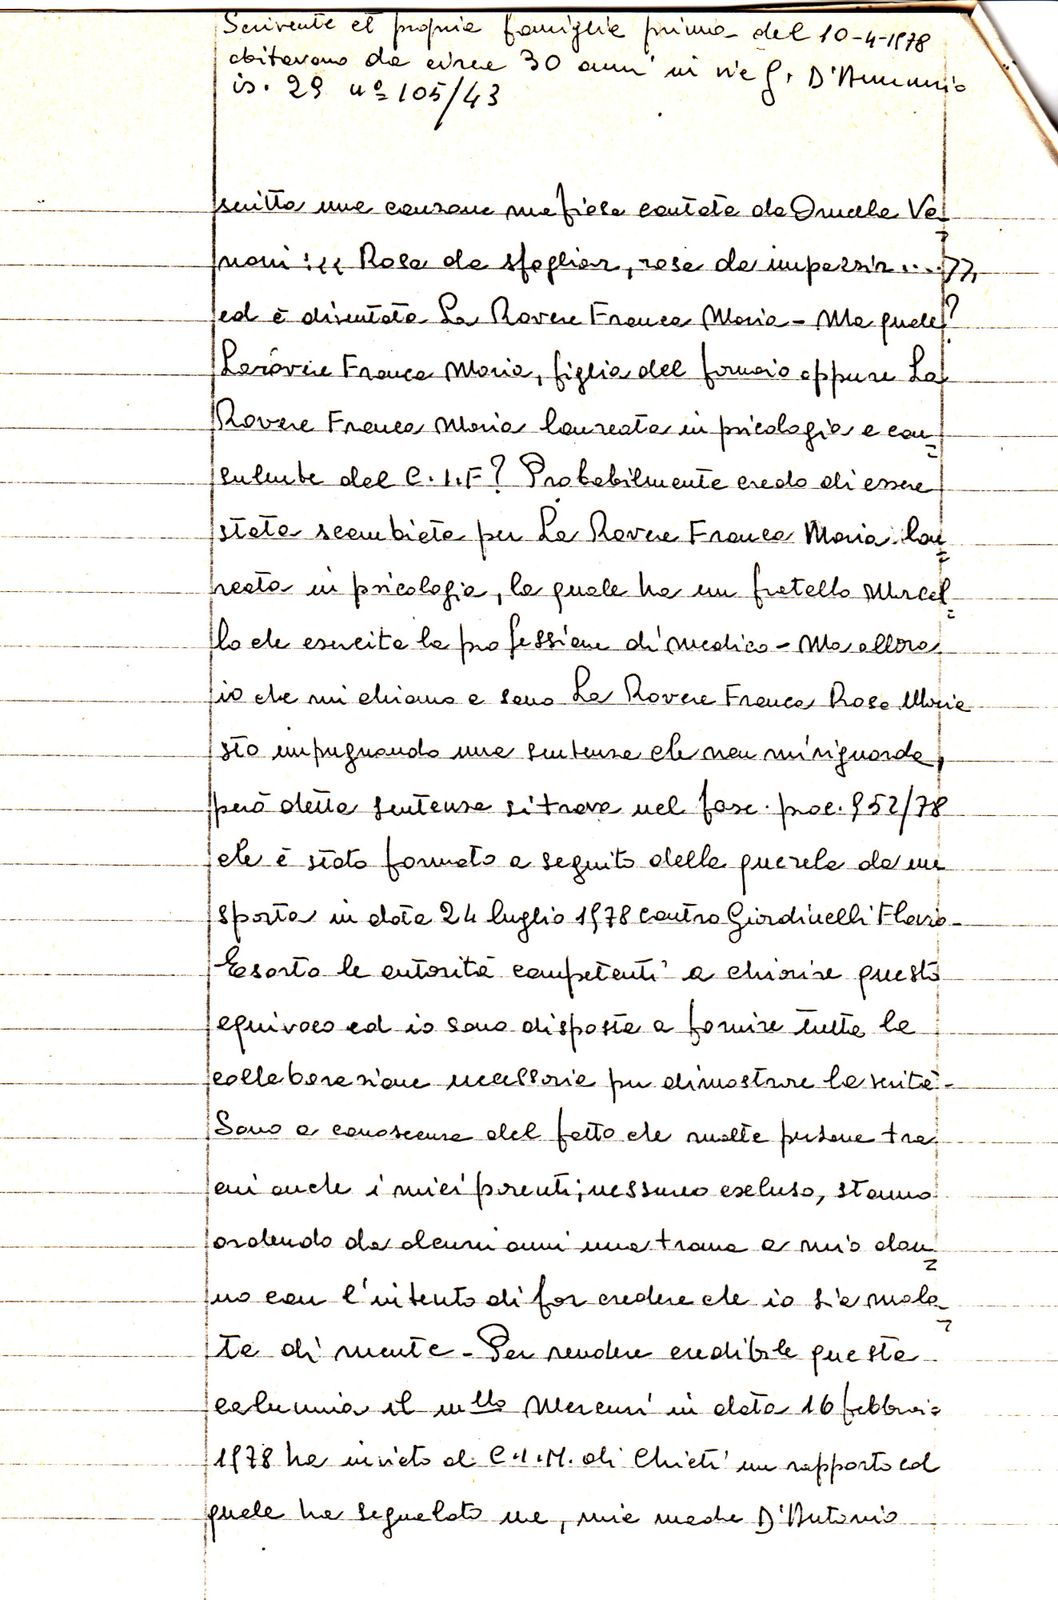 Scrivente et propria famiglia prima del 10-4-1978
abitavano da circa 30 anni in via G. D'Annunzio
is. 29 nº 105/43
scritta una canzone mafiosa cantata da Ornella Va=
noni: << Rosa da sfogliar, rosa da impazzir....>>,
ed è diventata La Rovere Franca Maria - Ma quale?
Larovere Franca Maria, figlia del fornaio oppure La
Rovere Franca Maria laureata in psicologia e con=
sulente del C.I.F? Probabilmente credo di essere
stata scambiata per La Rovere Franca Maria lau=
reata in psicologia, la quale ha un fratello Marcel=
lo che esercita la professione di medico - Ma allora
io che mi chiamo e sono La Rovere Franca Rosa Maria
sto impugnando una sentenza che non mi riguarda,
però detta sentenza si trova nel fasc. proc. 952/78
che è stato formato a seguito della querela da me
sporta in data 24 luglio 1978 contro Giardinelli Flavio -
Esorto le autorità competenti a chiarire questo
equivoco ed io sono disposta a fornire tutta la
collaborazione necessaria per dimostrare la verità -
Sono a conoscenza del fatto che molte persone tra
cui anche i miei parenti; nessuno escluso, stanno
ordendo da alcuni anni una trama a mio dan=
no con l'intento di far credere che io sia mala=
ta di mente - Per rendere credibile questa
calunnia il m.llo Mercuri in data 16 febbrai=
1978 ha inviato al C.I.M. di Chieti un rapporto col
quale ha segnalato me, mia madre D'Antonio